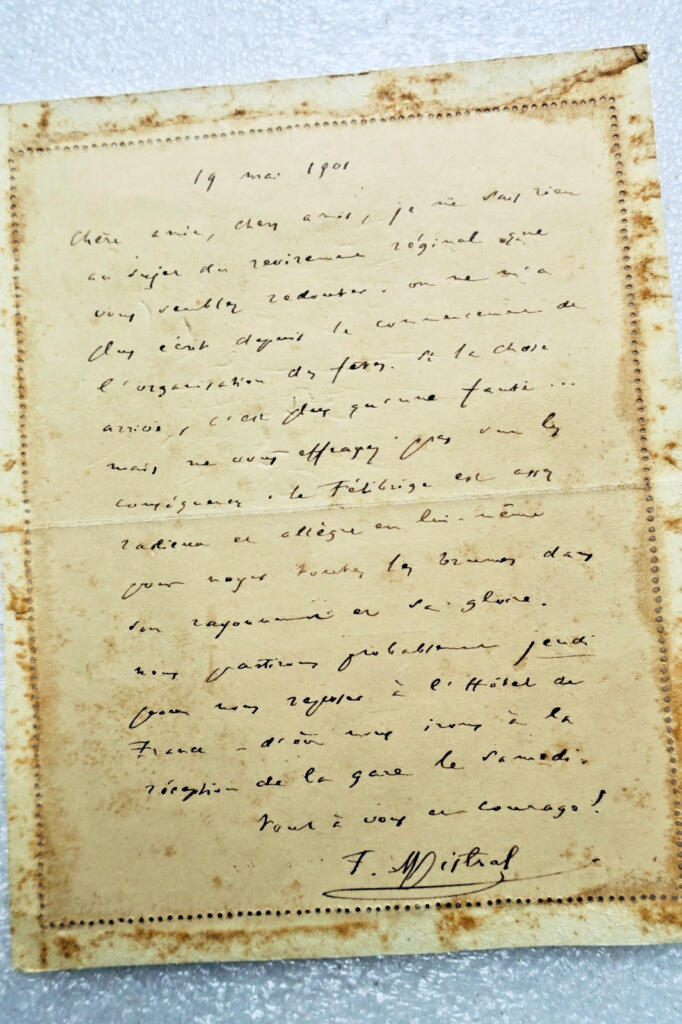 19 mai 1901
Chère amie, chers amis, je ne sais rien
au sujet du revirement réginal que
vous semblez redouter. on ne m'a
plus écrit depuis le commencement de
l'organisation des fêtes. Si la chose
arrive, c'est plus qu'une faute...
mais ne vous effrayez pas sur les
conséquences. le Félibrige est assez
radieux et allègre en lui-même
pour noyer toutes les brumes dans
son rayonnement et sa gloire.
nous partirons probablement jeudi
pour nous reposer à l'Hôtel de
France – d'où nous irons à la
réception de la gare le samedi.
Tout à vous et courage!
F. Mistral